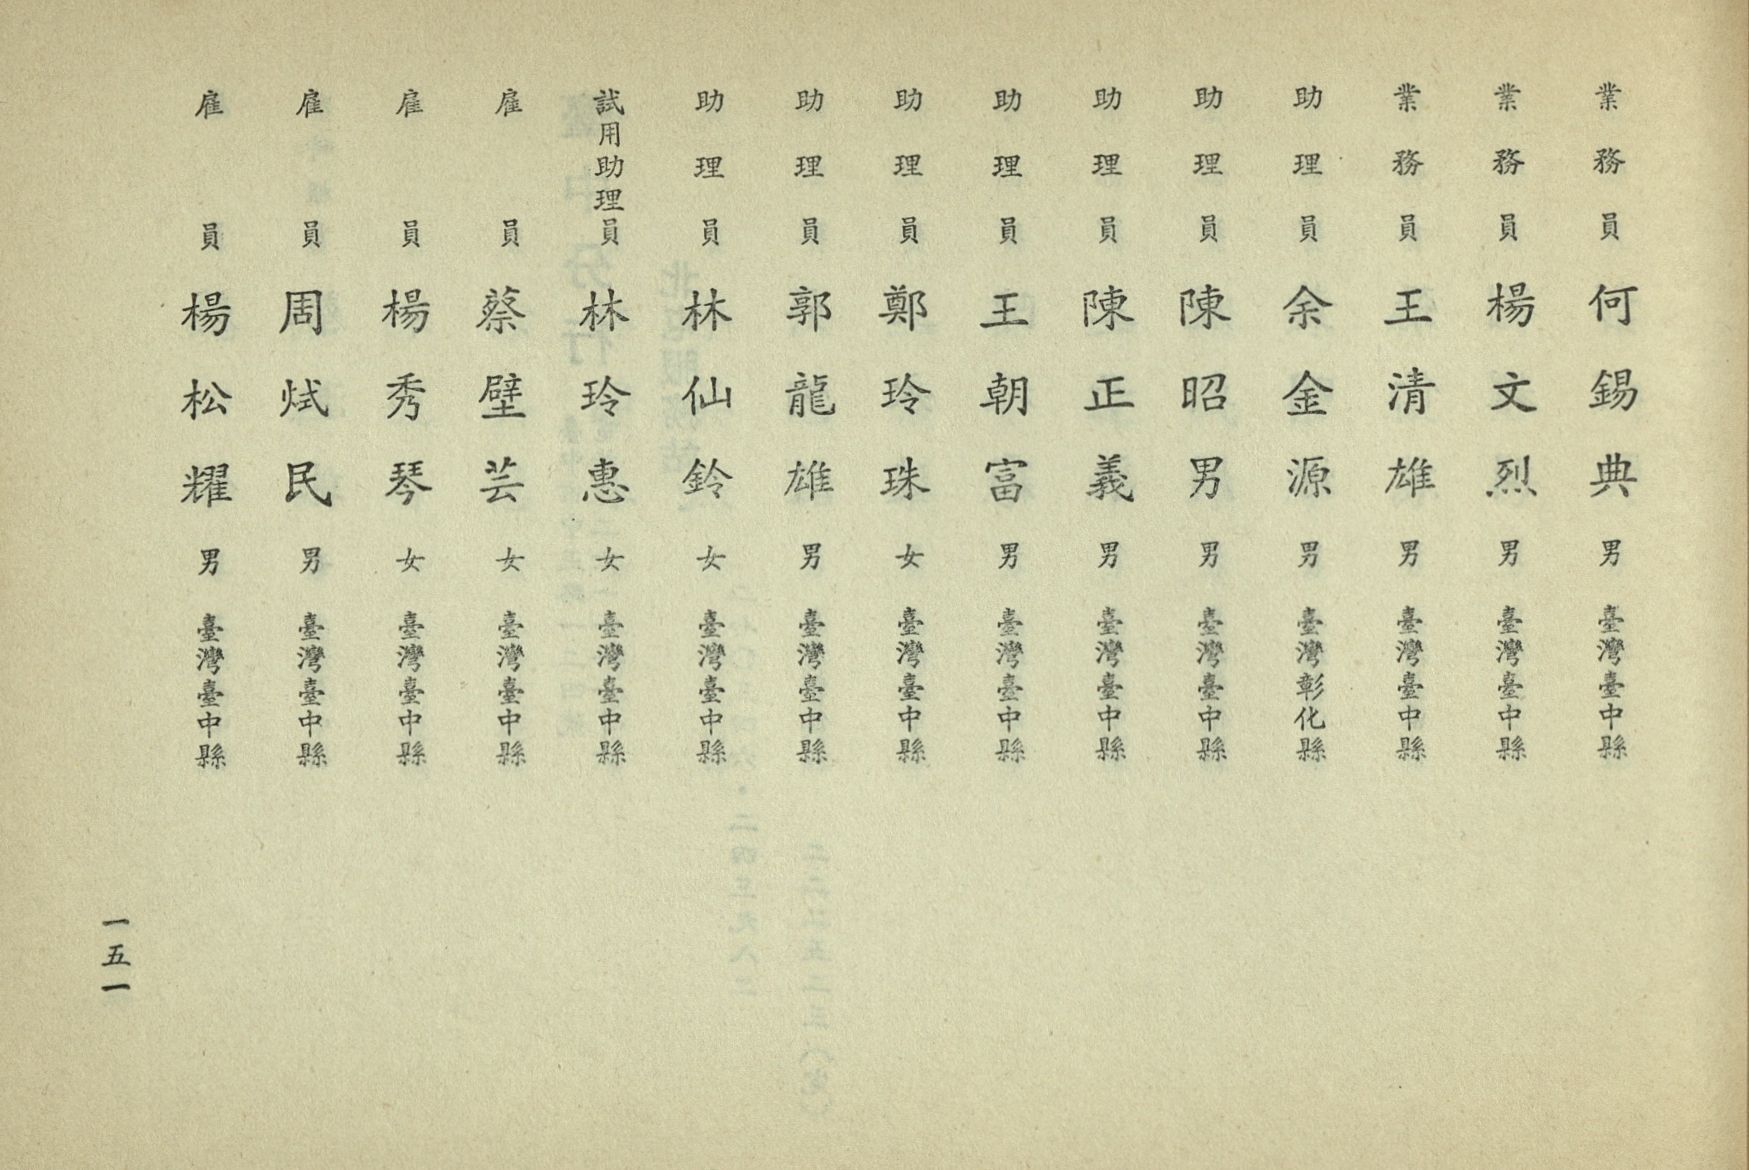 業務員何錫典男臺灣臺中縣
業務員楊文烈男臺灣臺中縣
業務員王清雄男臺灣臺中縣
助理員余金源男臺灣彰化縣
助理員陳昭男男臺灣臺中縣
助理員陳正義男臺灣臺中縣
助理員王朝富男臺灣臺中縣
助理員鄭玲珠女臺灣臺中縣
助理員郭龍雄男臺灣臺中縣
助理員林仙鈴女臺灣臺中縣
試用助理員林玲惠女臺灣臺中縣
雇員蔡壁芸女臺灣臺中縣
雇員楊秀琴女臺灣臺中縣
雇員周烒民男臺灣臺中縣
雇員楊松耀男臺灣臺中縣
一五一